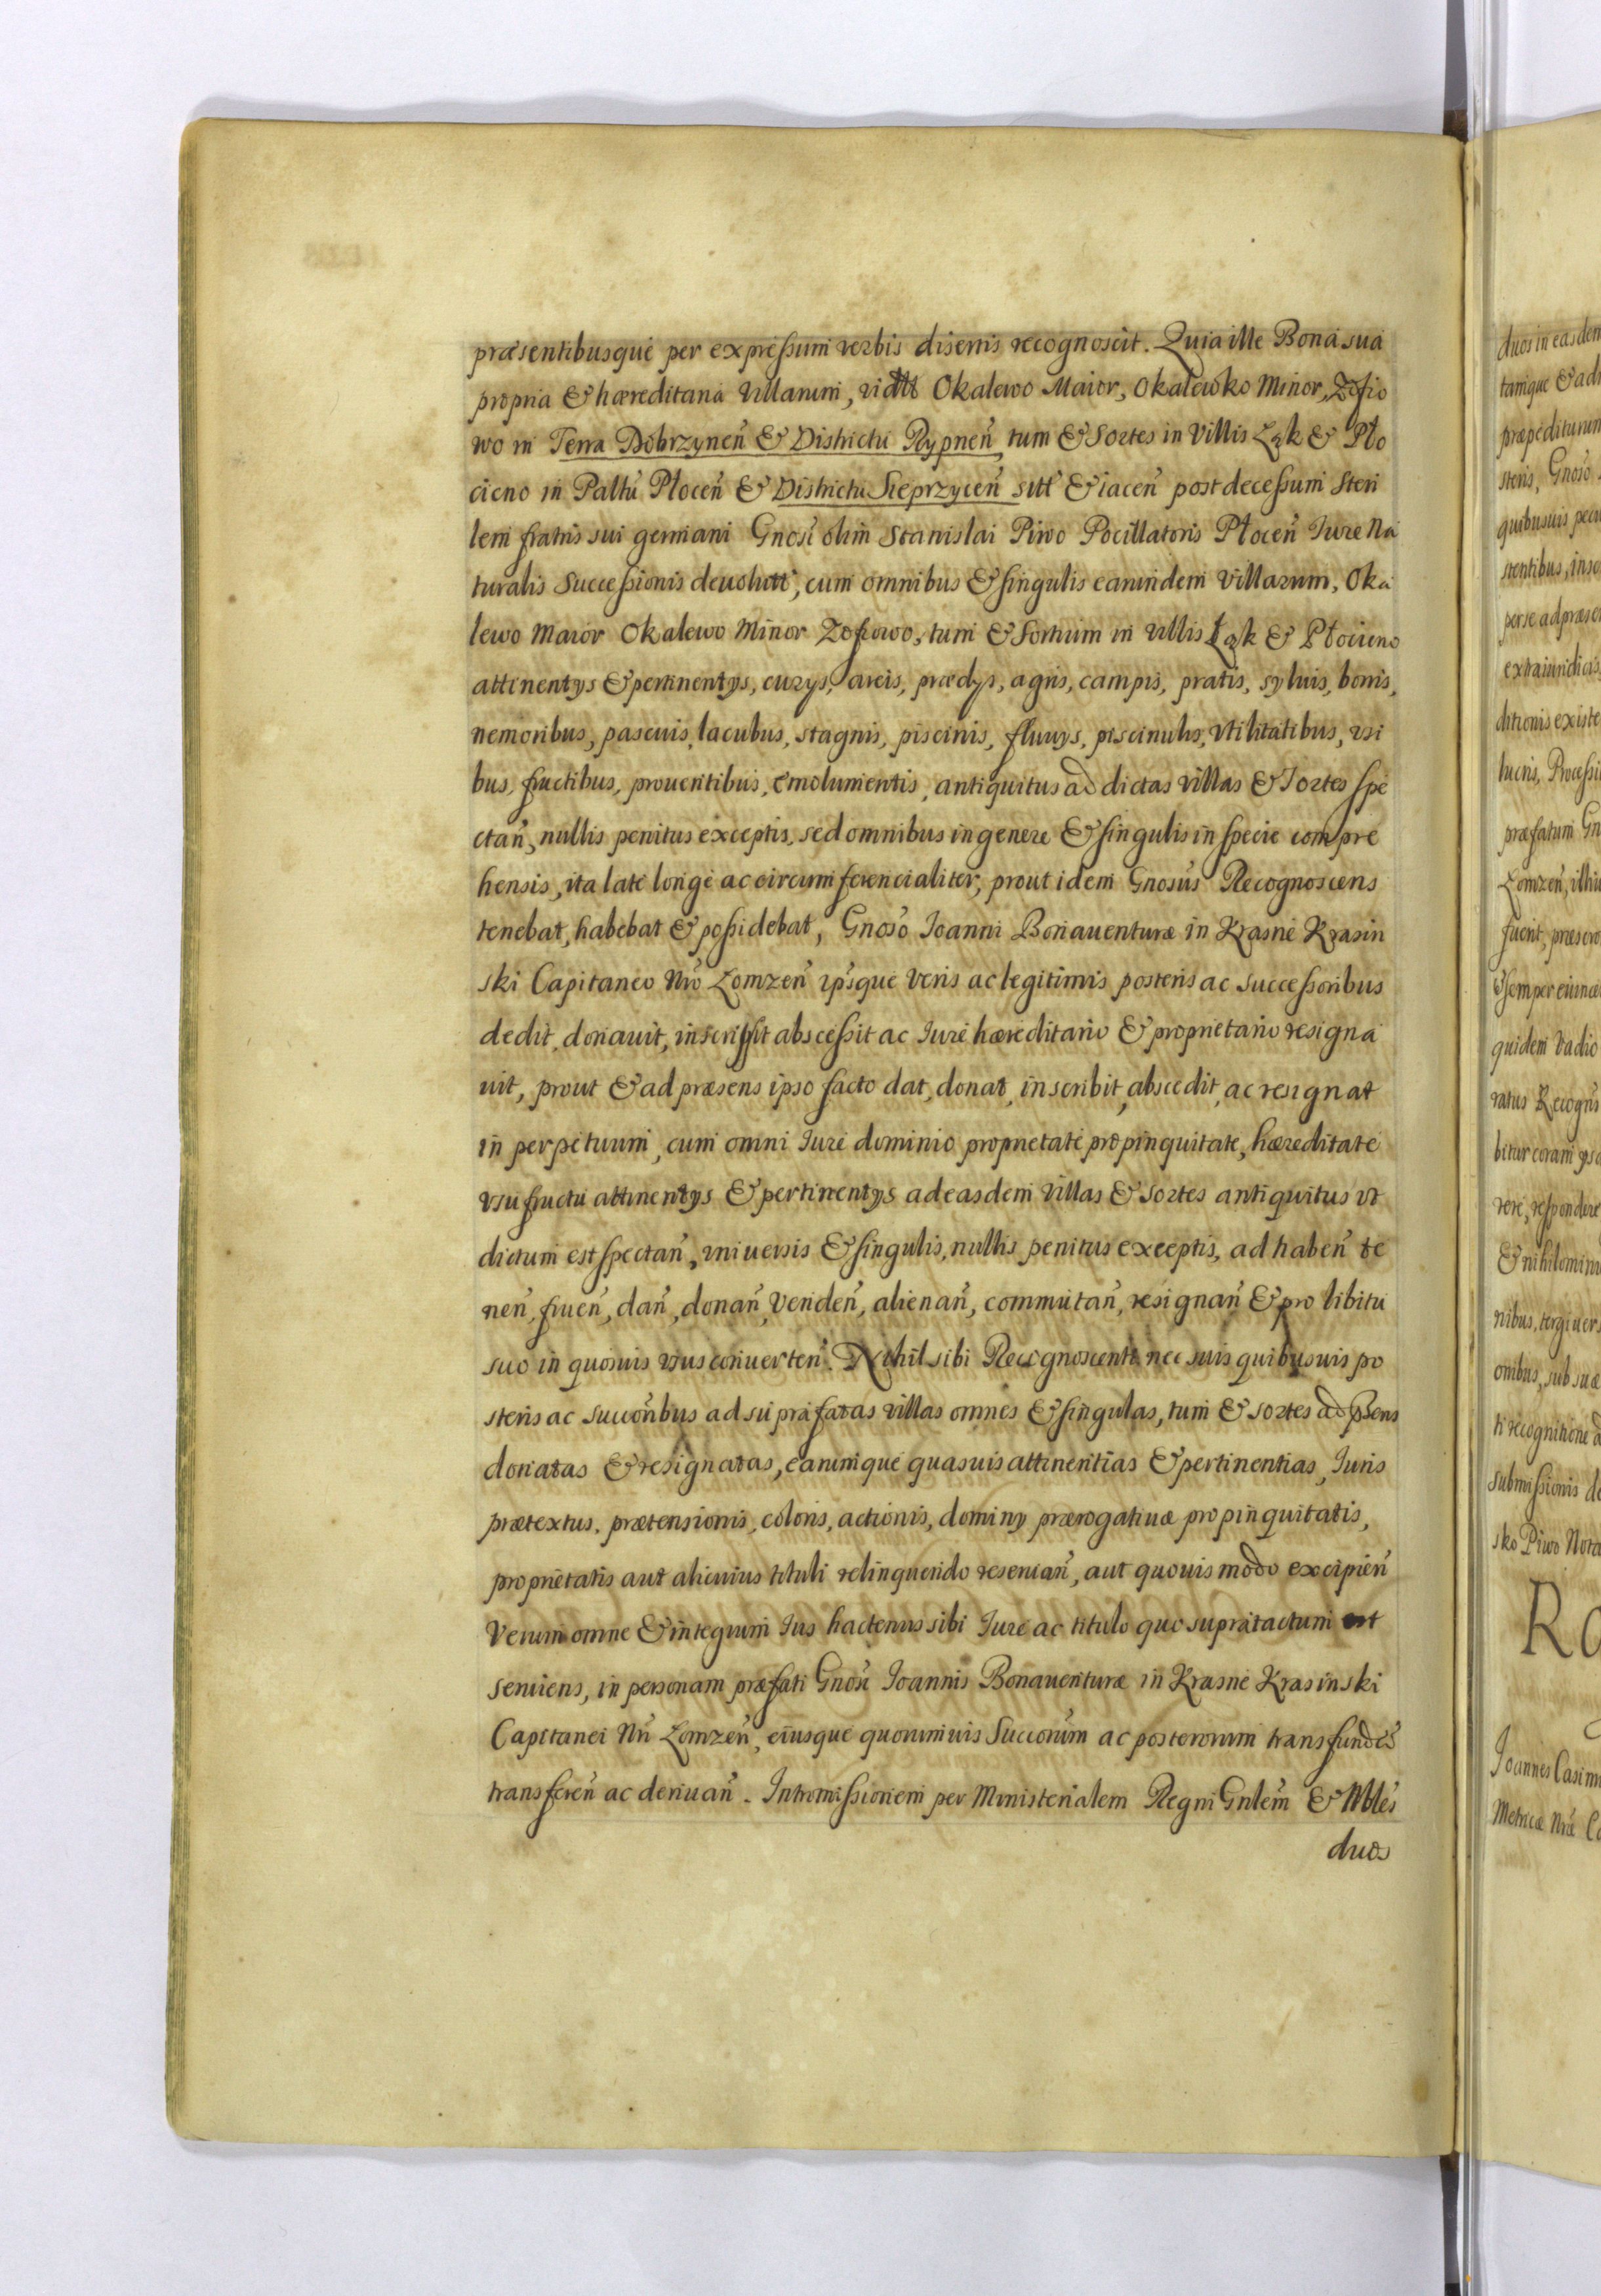 præsentibusque per expressum verbis disertis recognoscit. Quia ille Bona sua
propria & hæreditaria Villarum, vidtt Okalewo Maior, Okalewko Minor, Zofio
wo in Terra Dobrzyneń & Districtu Rypneń, tum & Sortes in Villis Ląk & Pło
cicno in Paltu Płoceń & Districtu Sieprzyceń sitt & iaceń post decessum Steri
lem fratris sui germani Gnosi olim Stanislai Piwo Pocillatoris Płoceń Iure Na
turalis Successionis deuolutt, cum omnibus & singulis earundem Villarum, Oka
lewo Maior Okalewo Minor Zofiowo, tum & Sortium in Villis Łąk & Płocicno
attinentys & pertinentys, curys, areis, prædys, agris, campis, pratis, syluis, borris,
nemoribus, pascuis, lacubus, stagnis, piscinis, fluuys, piscinulis, vtilitatibus, vsi
bus, fructibus, prouentibus, emolumentis, antiquitus ad dictas villas & Sortes spe
ctań, nullis penitus exceptis, sed omnibus in genere & singulis in specie compre
hensis, ita late longe ac circumferencialiter, prout idem Gnosus Recognoscens
tenebat, habebat & possidebat, Gnoso Ioanni Bonauenturæ in Krasne Krasin
ski Capitaneo Nro Lomzeń ipsque veris ac legitimis posteris ac successoribus
dedit, donauit, inscripsit abscessit ac Iure hæreditario & proprietario resigna
uit, prout & ad præsens ipso facto dat, donat, inscribit, abscedit, ac resignat
in perpetuum, cum omni Iure dominio proprietate propinquitate, hæreditate
vsufructu attinentys & pertinentys ad easdem villas & sortes antiquitus vt
dictum est spectań, vniuersis & singulis, nullis penitus exceptis, ad habeń te
neń, frueń, dań, donań, vendeń, alienań, commutań, resignań & pro libitu
suo in quosuis vsus conuerteń. Nihil sibi Recognoscenti nec suis quibusuis po
steris ac succoribus ad supra fatas villas omnes & singulas, tum & sortes ad psens
donatas & resignatas, earumque quasuis attinentias & pertinentias, Iuris
prætextus, prætensionis, coloris, actionis, dominy prærogatiuæ propinquitatis,
proprietatis aut alicuius tituli relinquendo reseruań, aut quouis modo excipień
Verum omne & integrum Ius hactenus sibi Iure ac titulo quo supra tactum est
seruiens, in personam præfati Gnosi Ioannis Bonauenturæ in Krasne Krasinski
Capitanei Nri Lomzeń, eiusque quorumuis Succorum ac posterorum transfundeń
transfereń ac deriuań. Intromissionem per Ministerialem Regni Gnlem & Nbles
duos